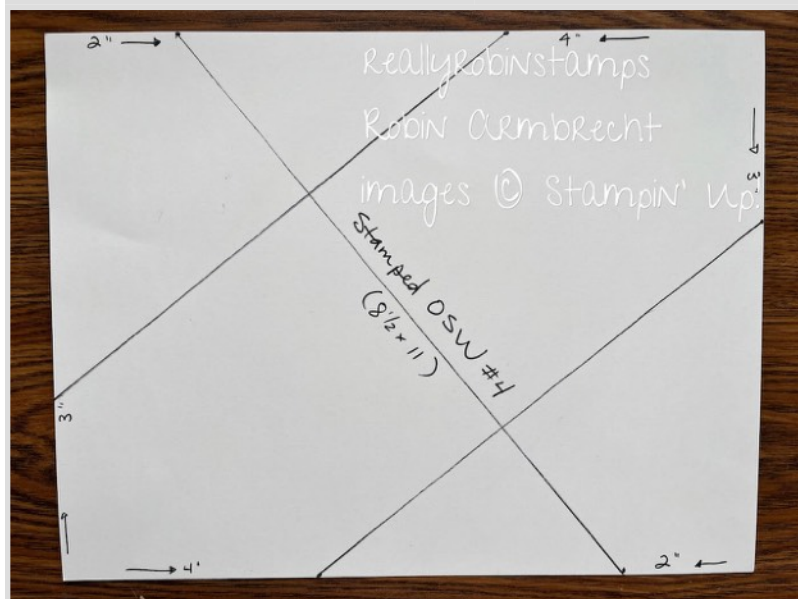 2"
4"
ReallyRobinstamps
Robin Armbrecht
images © Stampin' Up!
3"
Stamped OSW #4
(8½ x 11)
3"
4'
2"